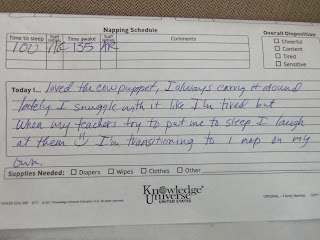 Napping Schedule
Time to sleep Staff Initials Time awake Staff Initials Comments
100 AR 135 AR
Overall Disposition
☐ Cheerful
☐ Content
☐ Tired
☐ Sensitive
Today I... loved the cow puppet, I always carry it around
lately I snuggle with it like I'm tired but
When my teachers try to put me to sleep I laugh
at them ☺ I'm transitioning to 1 nap on my
own.
Supplies Needed: ☐ Diapers ☐ Wipes ☐ Clothes ☐ Other
Knowledge
Universe
UNITED STATES